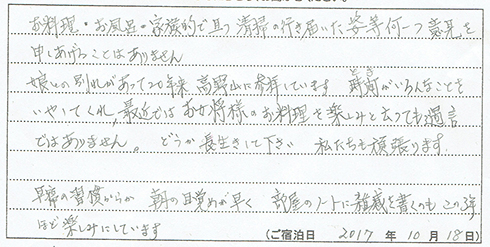 お料理・お風呂・家族的で且つ清掃の行き届いた姿等何一つ意見を
申しあげることはありません
娘との別れがあって20年来 高野山に参拝しています 時間がいろんなことを
いやしてくれ、最近ではおか将様のお料理を楽しみと云っても過言
ではありません。 どうか長生きして下さい 私たちも頑張ります
早寝の習慣からか 朝の目覚めが早く 部屋のノートに雑感を書くのもこの3年
ほど楽しみにしています
(ご宿泊日 2017 年 10 月 18日)